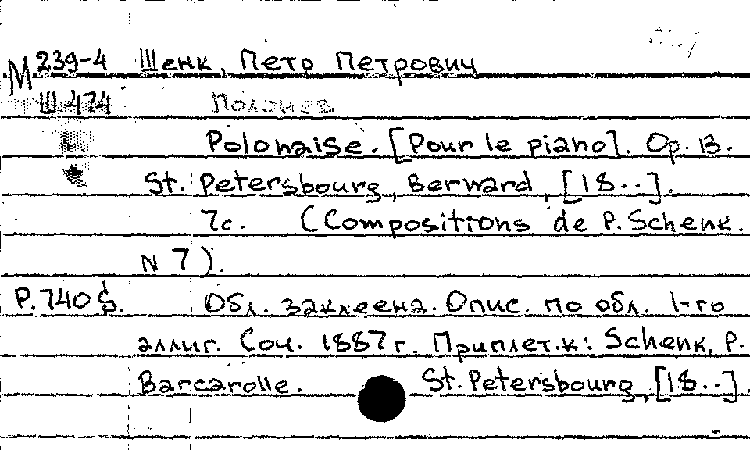 М 239-4 Шенк, Петр Петрович
Ш 474 Полонез
Polonaise. [Pour le piano]. Op. 13.
St. Petersbourg, Bernard, [18..].
7c. (Compositions de P. Schenk.
N 7).
P. 740 $. Обл. заклеена. Опис. по обл. 1-го
аллиг. Соч. 1887 г. Приплет.к: Schenk, P.
Barcarolle. St. Petersbourg, [18..]